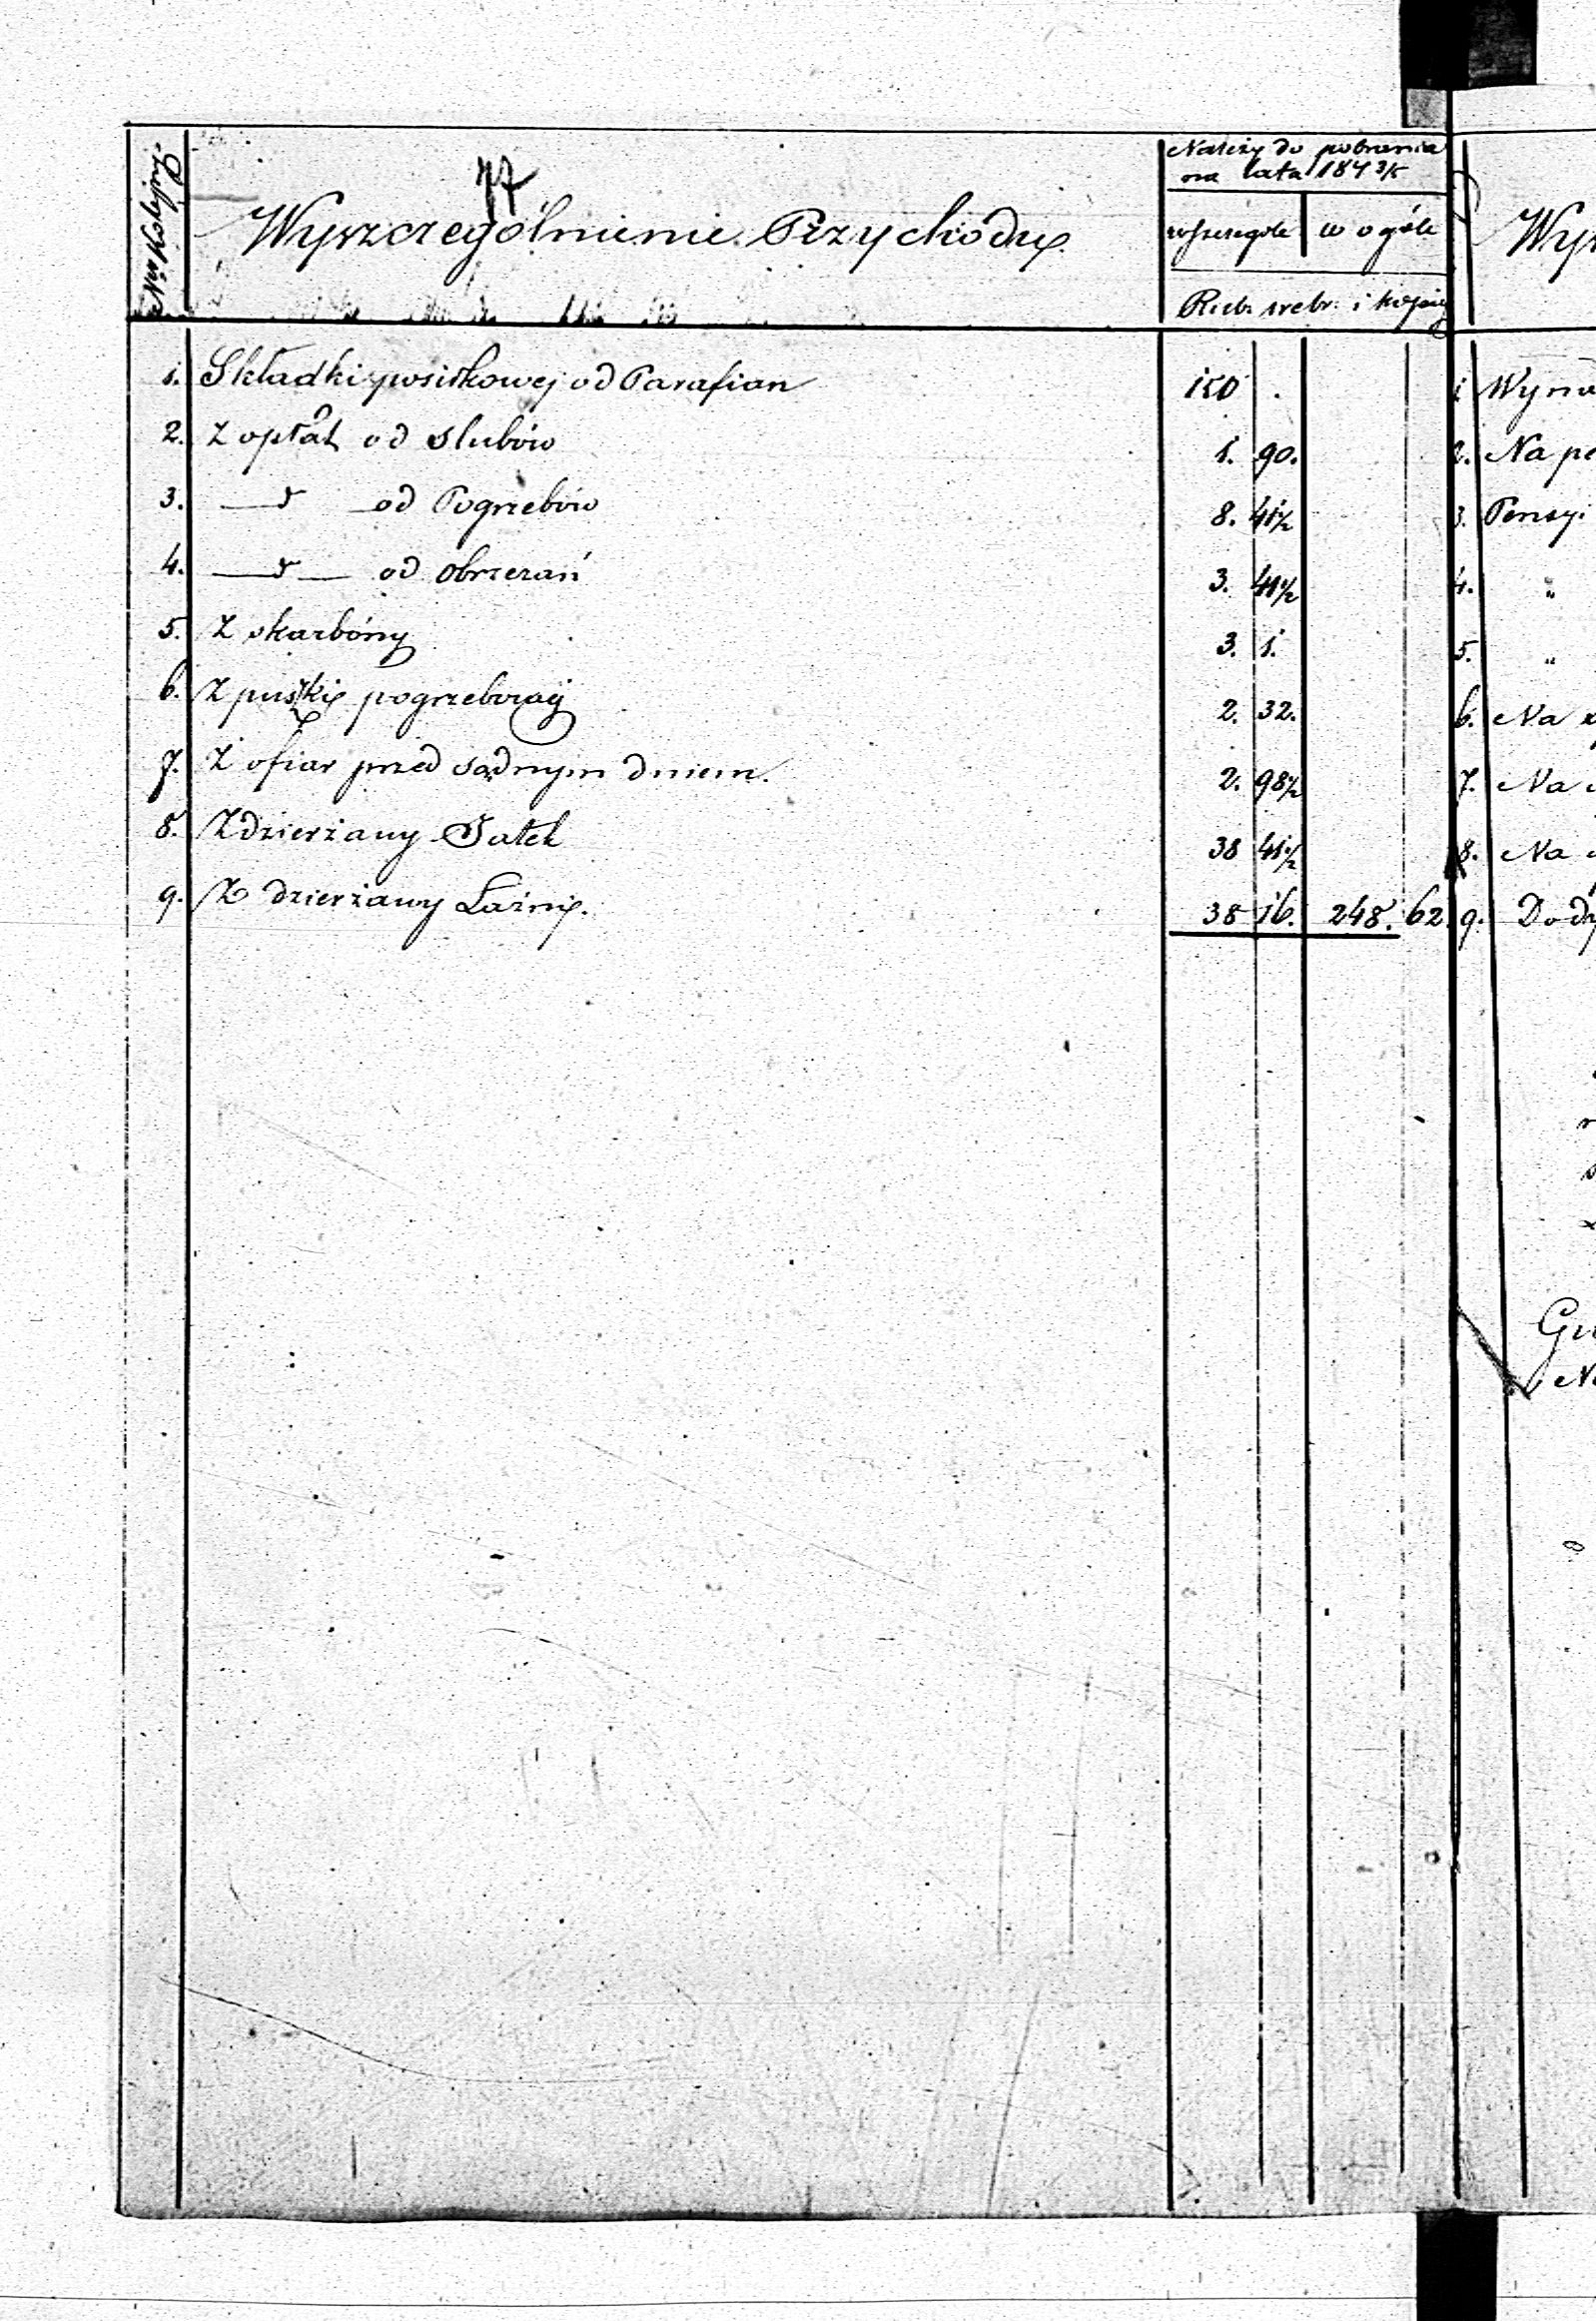 Należy do pobrania
na lata 184 3/5
Wyszczególnienie Przychodu
w szczególe w ogóle
Rub. srebr. i kopiej
1. Składki posiłkowej od Parafian 150 .
2. Z opłat od Slubów 1. 90.
3. — d — od Pogrzebów 8. 41½
4. — d — od Obrzezań 3. 41½
5. Z skarbóny 3. 1.
6. Z puszki pogrzebowej 2. 32.
7. Z ofiar przed sądnym dniem. 2. 98½
8. Z dzierżawy Jatek 38 41½
9. Z dzierżawy Łaźni. 38 16. 248. 62.
1. 
2. Na
3. Pensyi
4. "
5. "
6. Na
7. Na
8. Na
9. Do